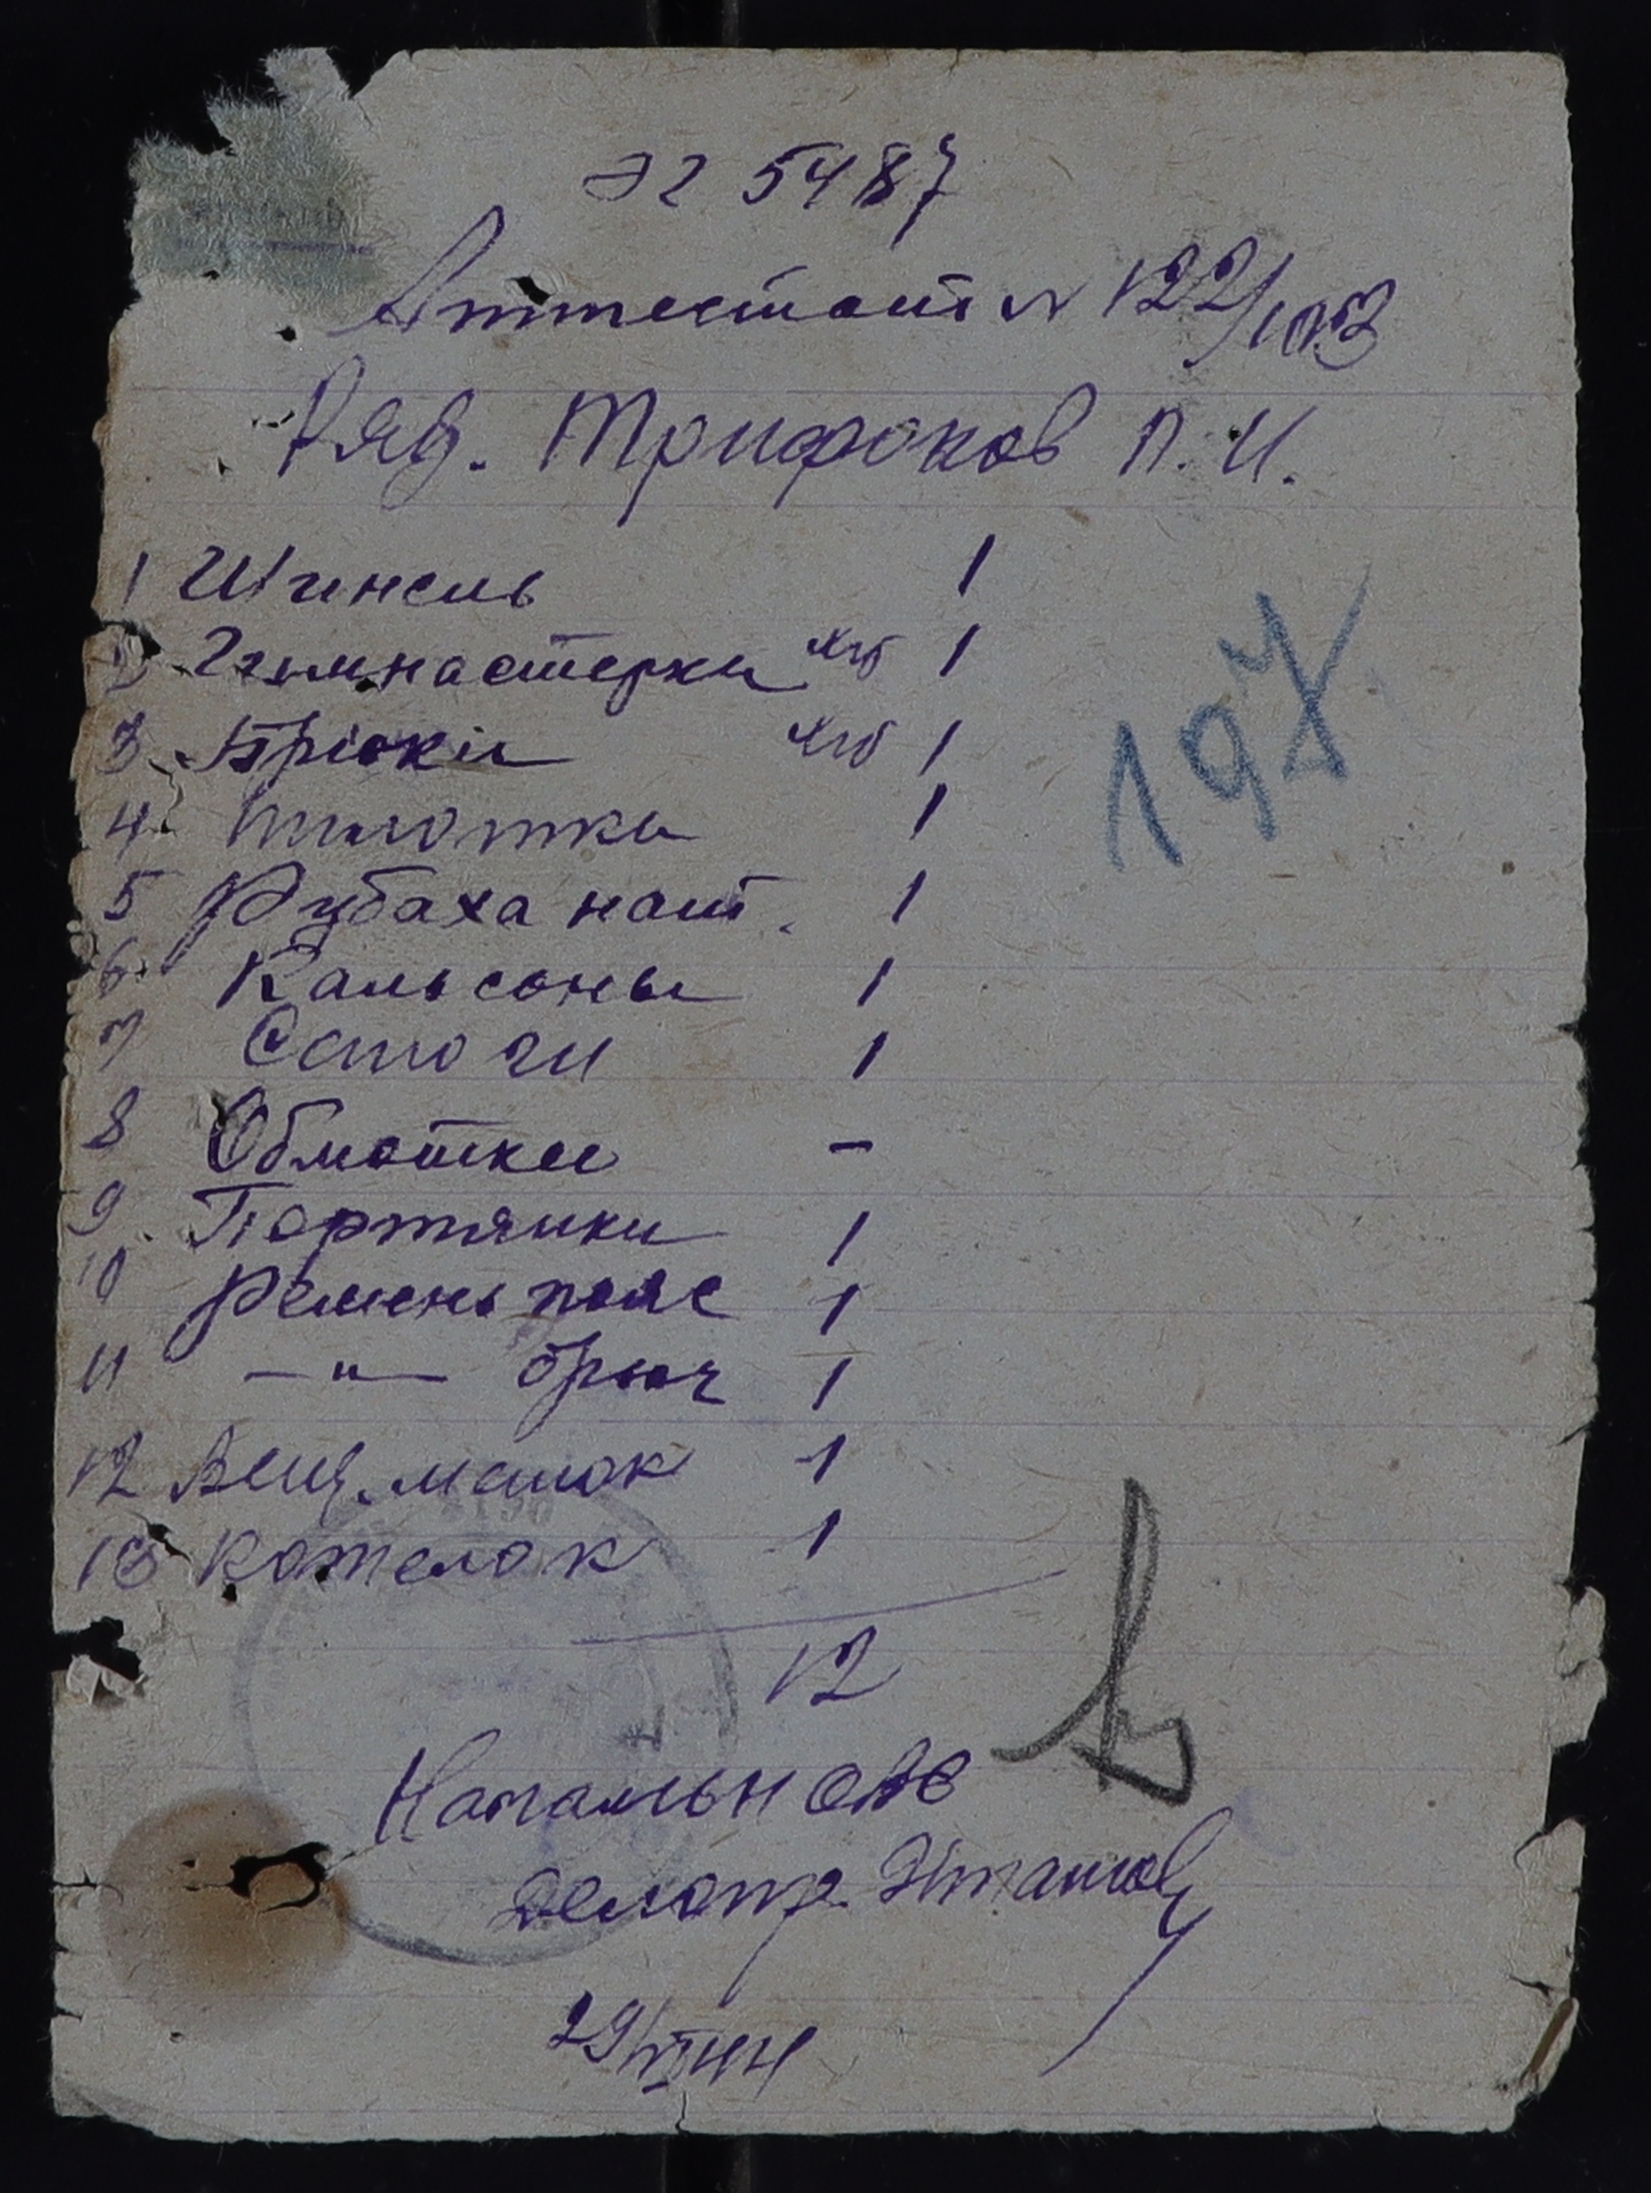 ЭГ 5487
Аттестат N 122/
Ряд. Трифонов П. И.
1 Шинель 1
2 Гимнастерка х/б 1
3 Брюки х/б 1
4 Пилотка 1
5 Рубаха нат. 1
6 Кальсоны 1
7 Сапоги 1
8 Обмотки -
9 Портянки 1
10 Ремень пояс 1
11 —"— брюч 1
12 Вещ. мешок 1
13 Котелок 1
12
Начальн ОВС
Делопр.
29/VI 44